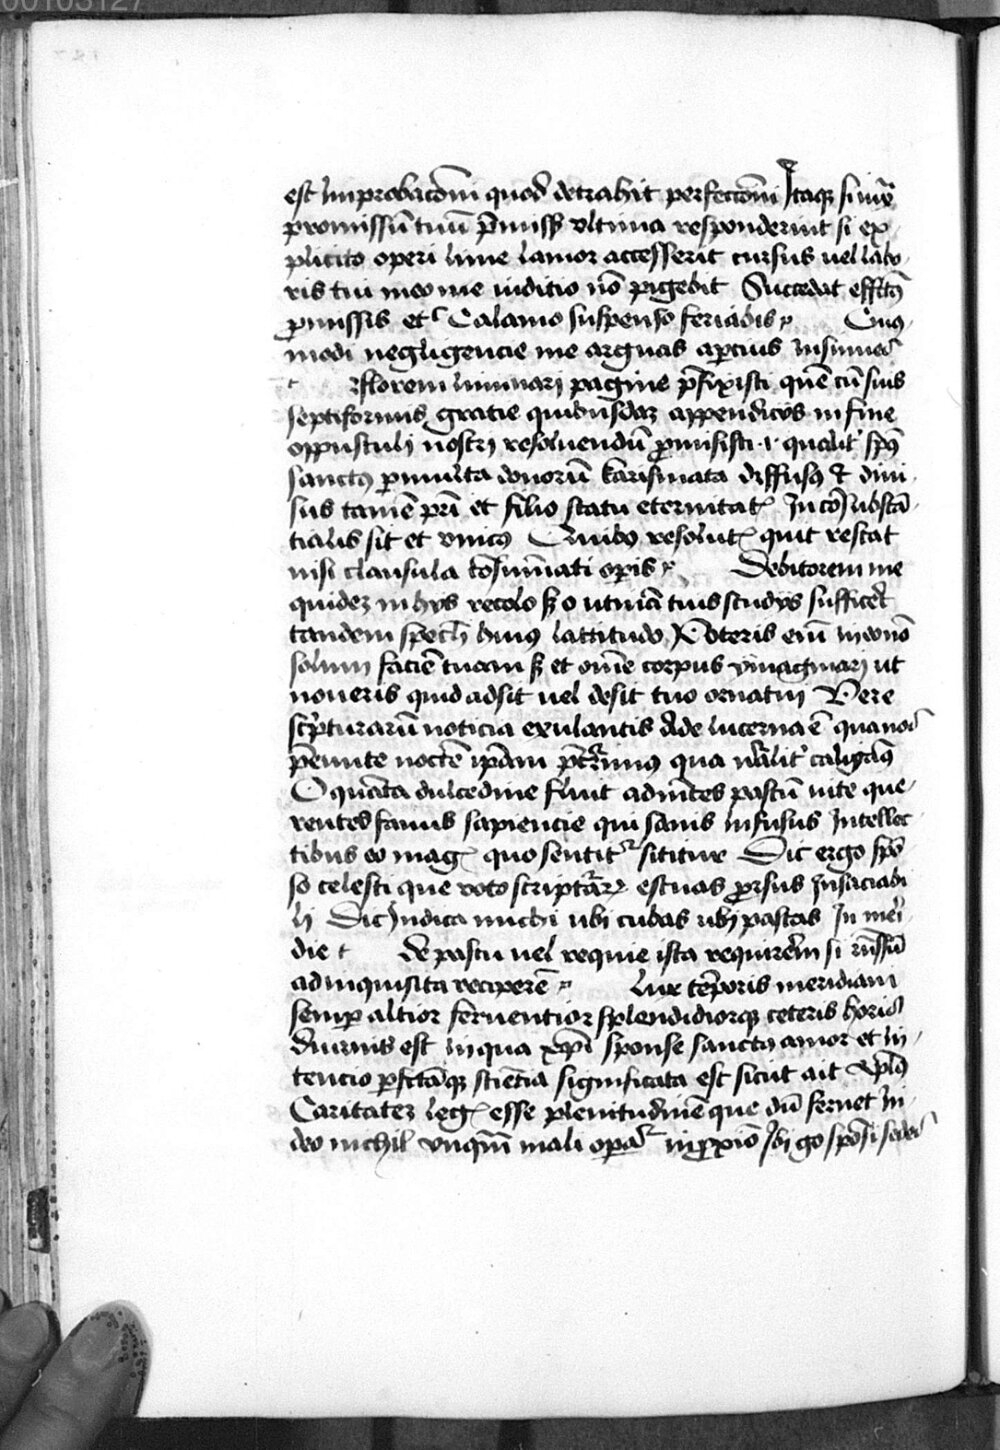 60103127
est improbacõm quod detrahit perfectõni Itaque si iuxᵃ
promissũ tuũ p̃miss ultima responderint si ex
plicito operi lime lamor accesserit cursus uel labo
ris tui meo me iuditio nõ pigebit Succedat effct9
pmissis et Calamo suspenso feriabis Cui9
modi negligencie me arguas apcius insinues
t florem liminari pagine p̃fixisti quẽ cũ suis
septiformis gratie quibusdaz appendicijs in fine
oppusculi nostri resoluendũ promisisti i qualit sp̃s
sanctus p multa donorũ karismata diffusus et diui
sus tamẽ pr̃i et filio statu eternitatis In cõsubstã
tialis sit et unicus Quibus resolutis quit restat
nisi clausula cõsũmati op̃is Debitorem me
quidez in hijs recolo sz o utinã tuis studijs sufficẽt
tandem spech̃ huius lattitudo Poteris eñ in eo nõ
solum faciẽ tuam sz et omẽ corpus ymaginari ut
noueris quid adsit uel desit tuo ornatui Vere
scp̃turarũ noticia exulantis ade lucerna ẽ
p̃eunte noctẽ ip̃am qua nãlit caligãs
O quãta dulcedine f̃uũt admĩtes pastũ uite que
rentes fauus sapiencie qui sanis infusus Intellec
tibus eo magis quo sentit sititur Dic ergo spõ
so celesti que uoto scripturarum estuas prorsus Insaciabi
li Dic Indica michi ubi cubas ubi pascas In meri
die t de pastu uel requie ista requirerem si
ad inquisita reciperẽ Lux tẽporis meridiani
semp altior feruentior splendidiorque ceteris horis
diurnis est in qua xp̃i sponse sanctus amor et in
tencio pfctãque sciẽtia significata est sicut ait apl̃us
Caritatez legis esse plenitudinẽ que dũ feruet in
deo nichil unquã mali opat in proximo Ibi g̊ spõsi sedes